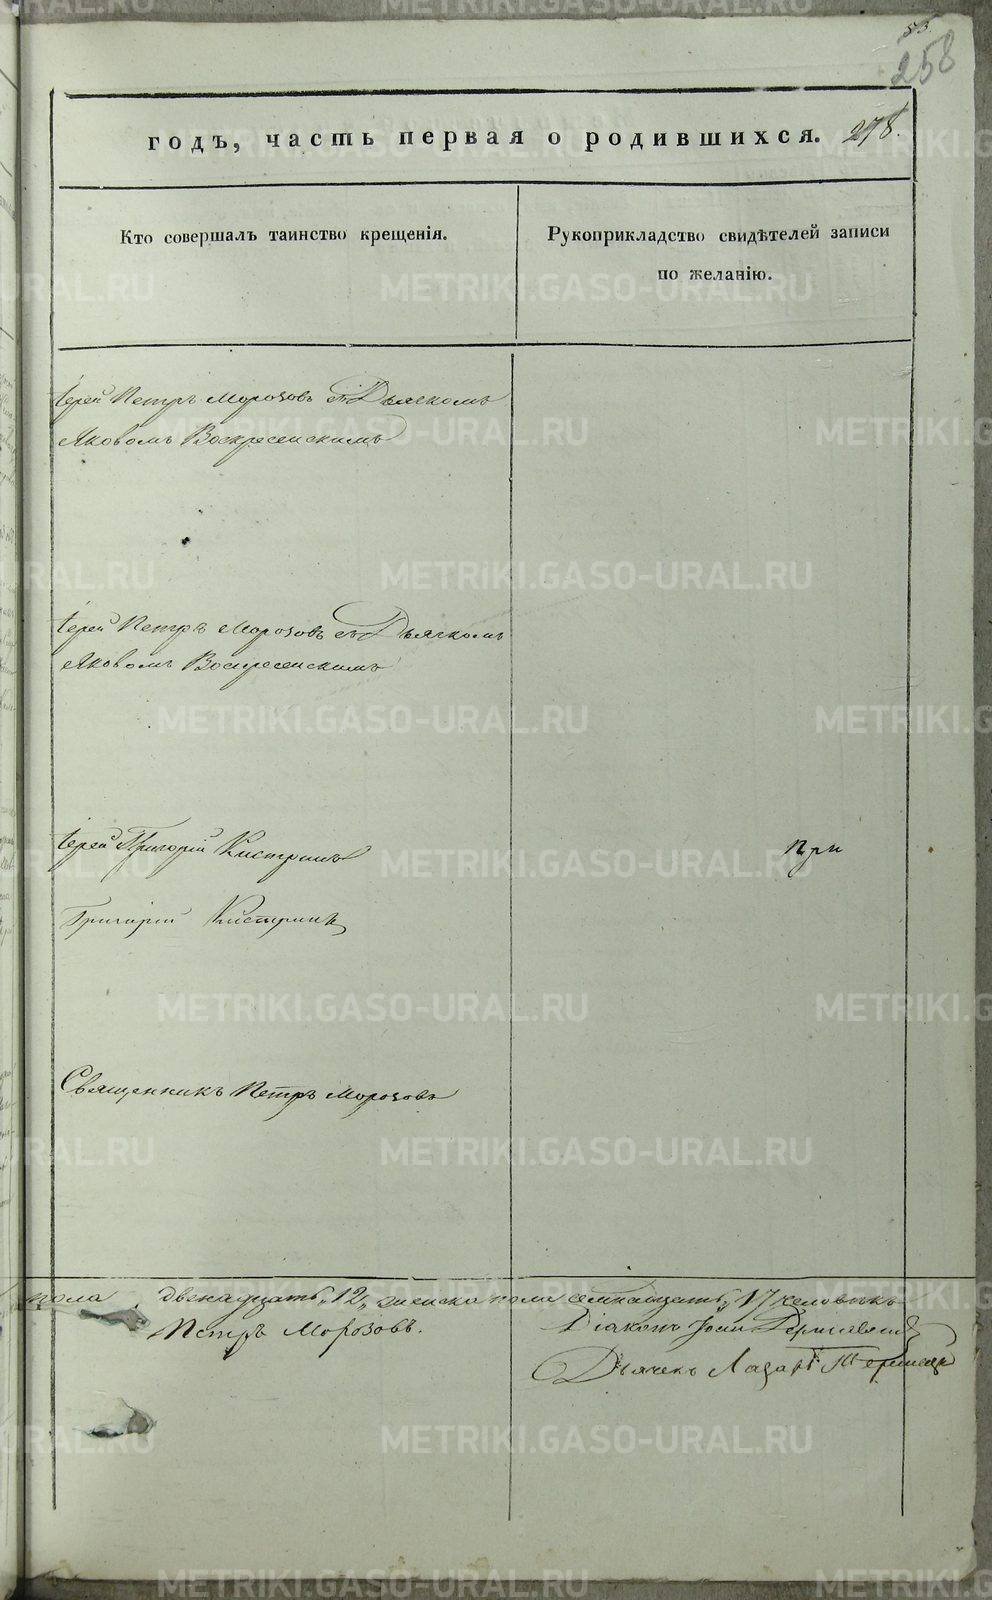 85.
258
годъ, часть первая о родившихся. 278.
Кто совершалъ таинство крещенія.
Рукоприкладство свидѣтелей записи
по желанію.
Іерей Петръ Морозовъ съ Дьячкомъ
Яковомъ Воскресенскимъ
Іерей Петръ Морозовъ съ Дьячкомъ
Яковомъ Воскресенскимъ
Іерей Григорій Кистринъ
при
Григорій Кистринъ
Священникъ Петръ Морозовъ
пола двенадцать „12„ женска пола семнадцать „17 человѣкъ
Петръ Морозовъ.
Діаконъ
Дьячекъ Лазарь
METRIKI.GASO-URAL.RU